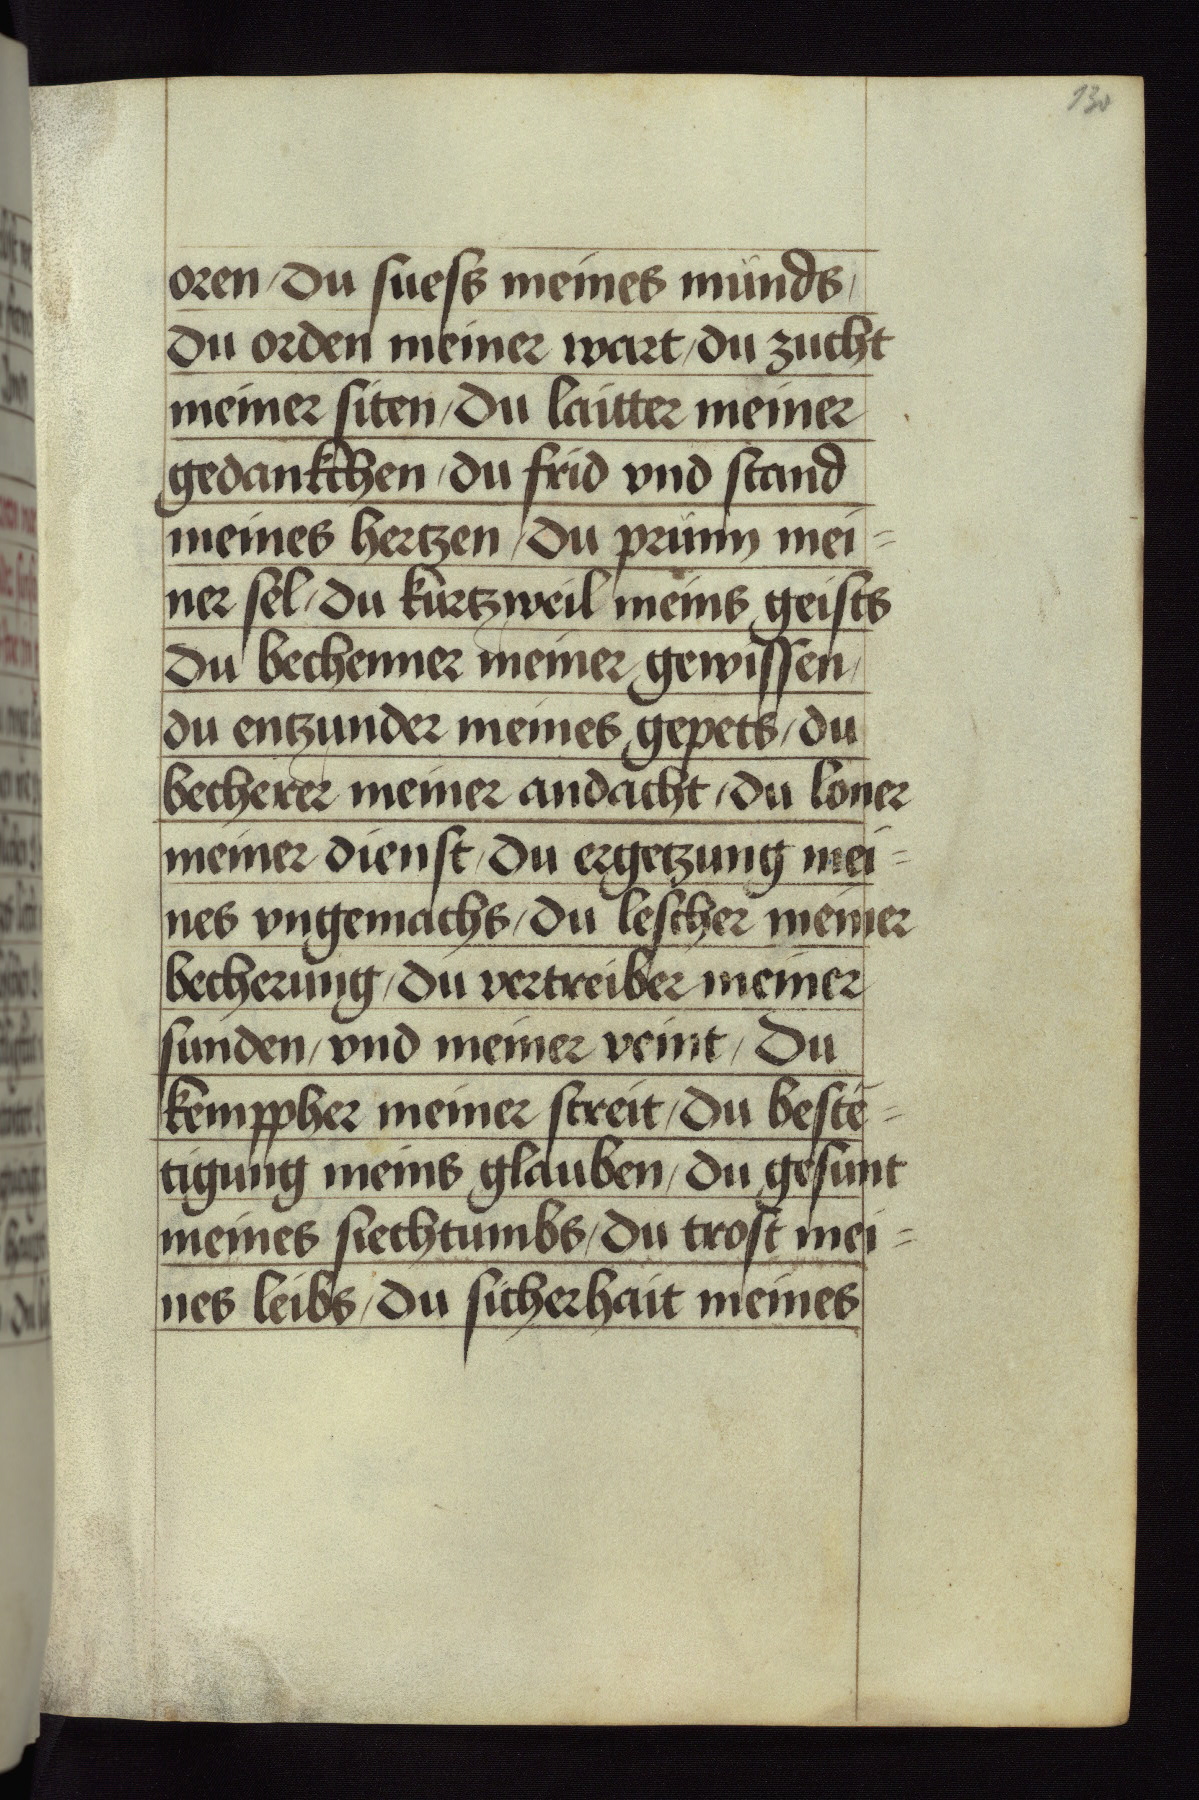 130
oren / Du suess meines münds /
Du orden meiner wart / du zucht
meiner siten / Du laütter meiner
gedankchen / du frid vnd stand
meines hertzen / Du prünn mei=
ner sel / Du kürtzweil meins geists
Du bechenner meiner gewissen /
du entzunder meines gepets / du
becherer meiner andacht / Du loner
meiner dienst / Du ergetzung mei=
nes vngemachs / Du lescher meiner
becherüng / Du vertreiber meiner
sünden / vnd meiner veint / Du
kemppher meiner streit / Du beste=
tigüng meins glauben / Du gesunt
meines siechtumbs / Du trost mei=
nes leibs / Du sicherhait meines